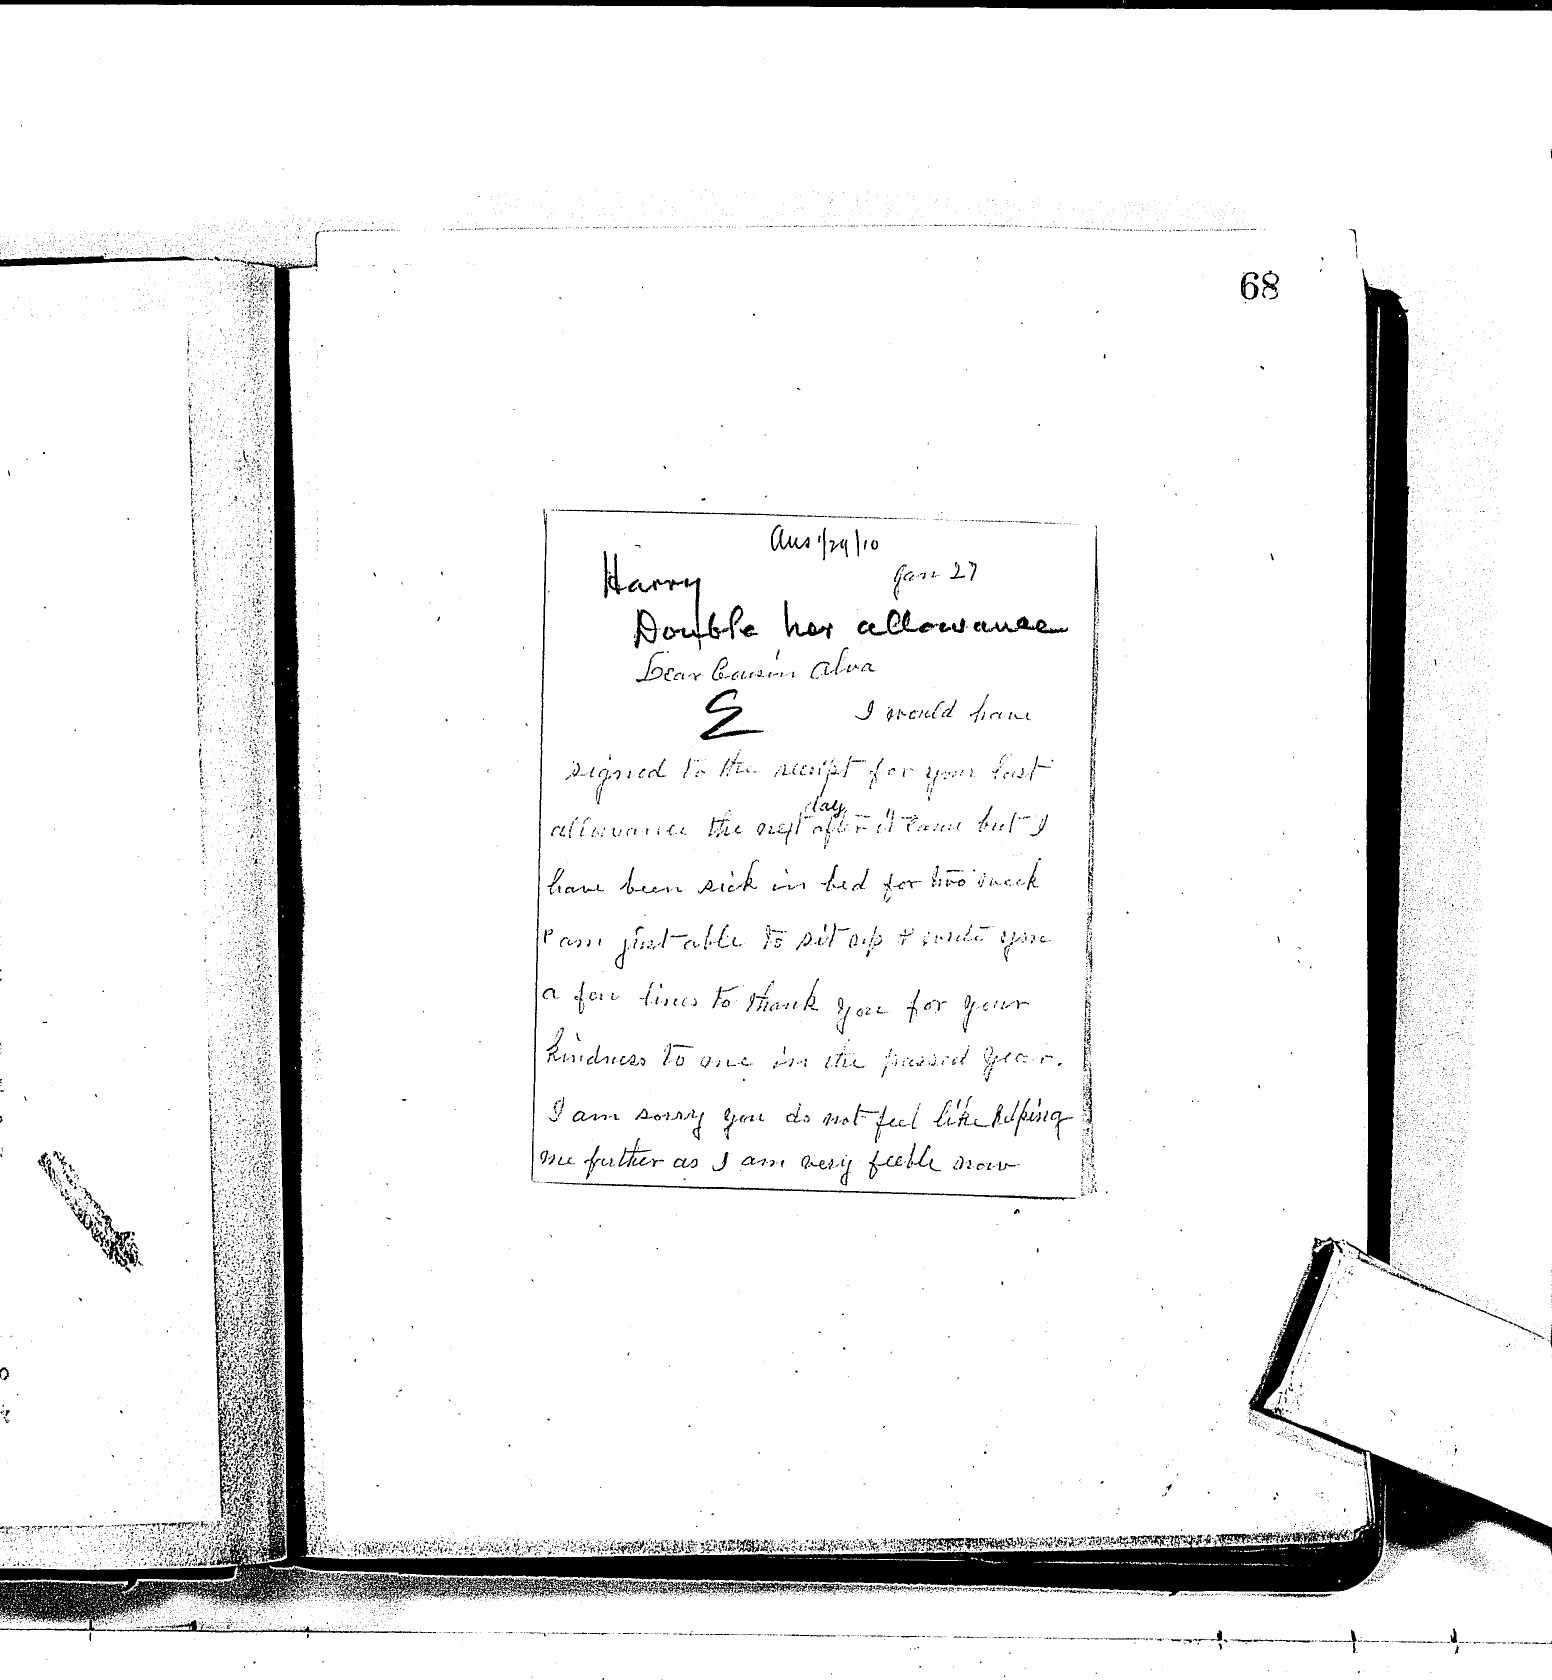 68
Ans 1/29/10
Jan 27
Harry
Double her allowance
Dear Cousin Alva
E
I would have
signed to the receipt for your last
allowance the next day after it came but I
have been sick in bed for two week
I am just able to sit up & write you
a few lines to thank you for your
kindness to me in the passed year.
I am sorry you do not feel like helping
me further as I am very feeble now